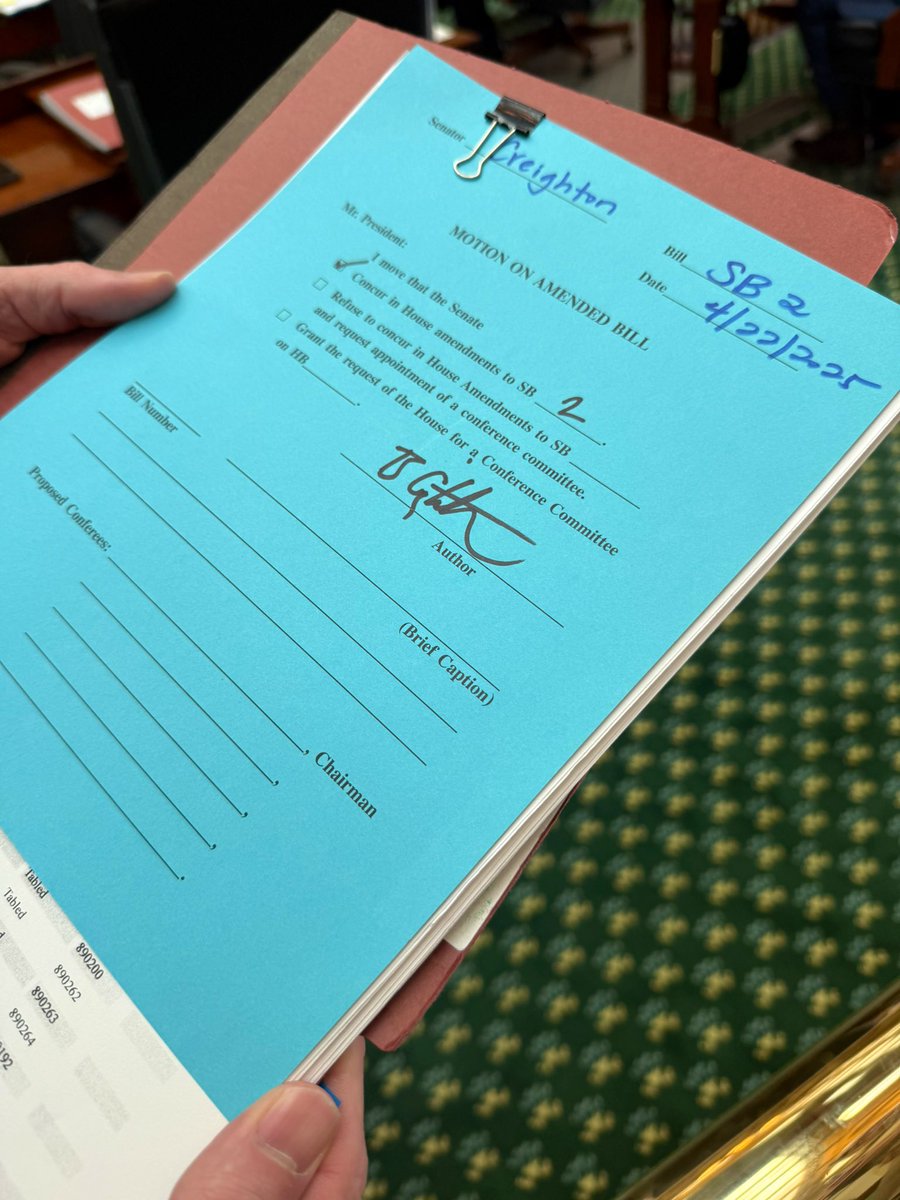 Senator Creighton
Bill SB 2
Date 4/22/2025
MOTION ON AMENDED BILL
Mr. President:
I move that the Senate
Concur in House amendments to SB 2.
Refuse to concur in House Amendments to SB
and request appointment of a conference committee.
Grant the request of the House for a Conference Committee
on HB.
Author
Bill Number
(Brief Caption)
Proposed Conferees:
, Chairman
,
,
,
.
Tabled
Tabled
890200
890262
890263
890264